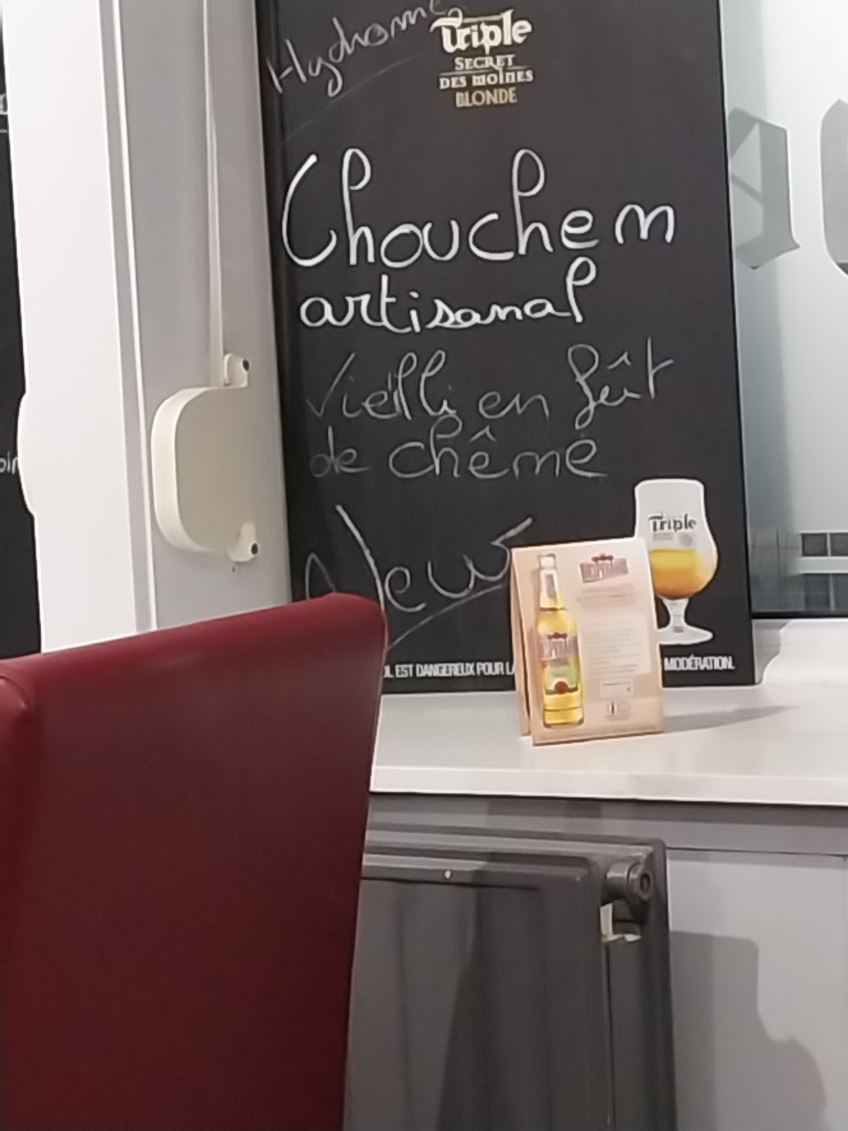 Hydromel
Triple
SECRET
DES MOINES
BLONDE
Chouchem
artisanal
Vieilli en fût
de chême
New
Triple
DESPERADOS
OL EST DANGEREUX POUR LA
MODÉRATION.